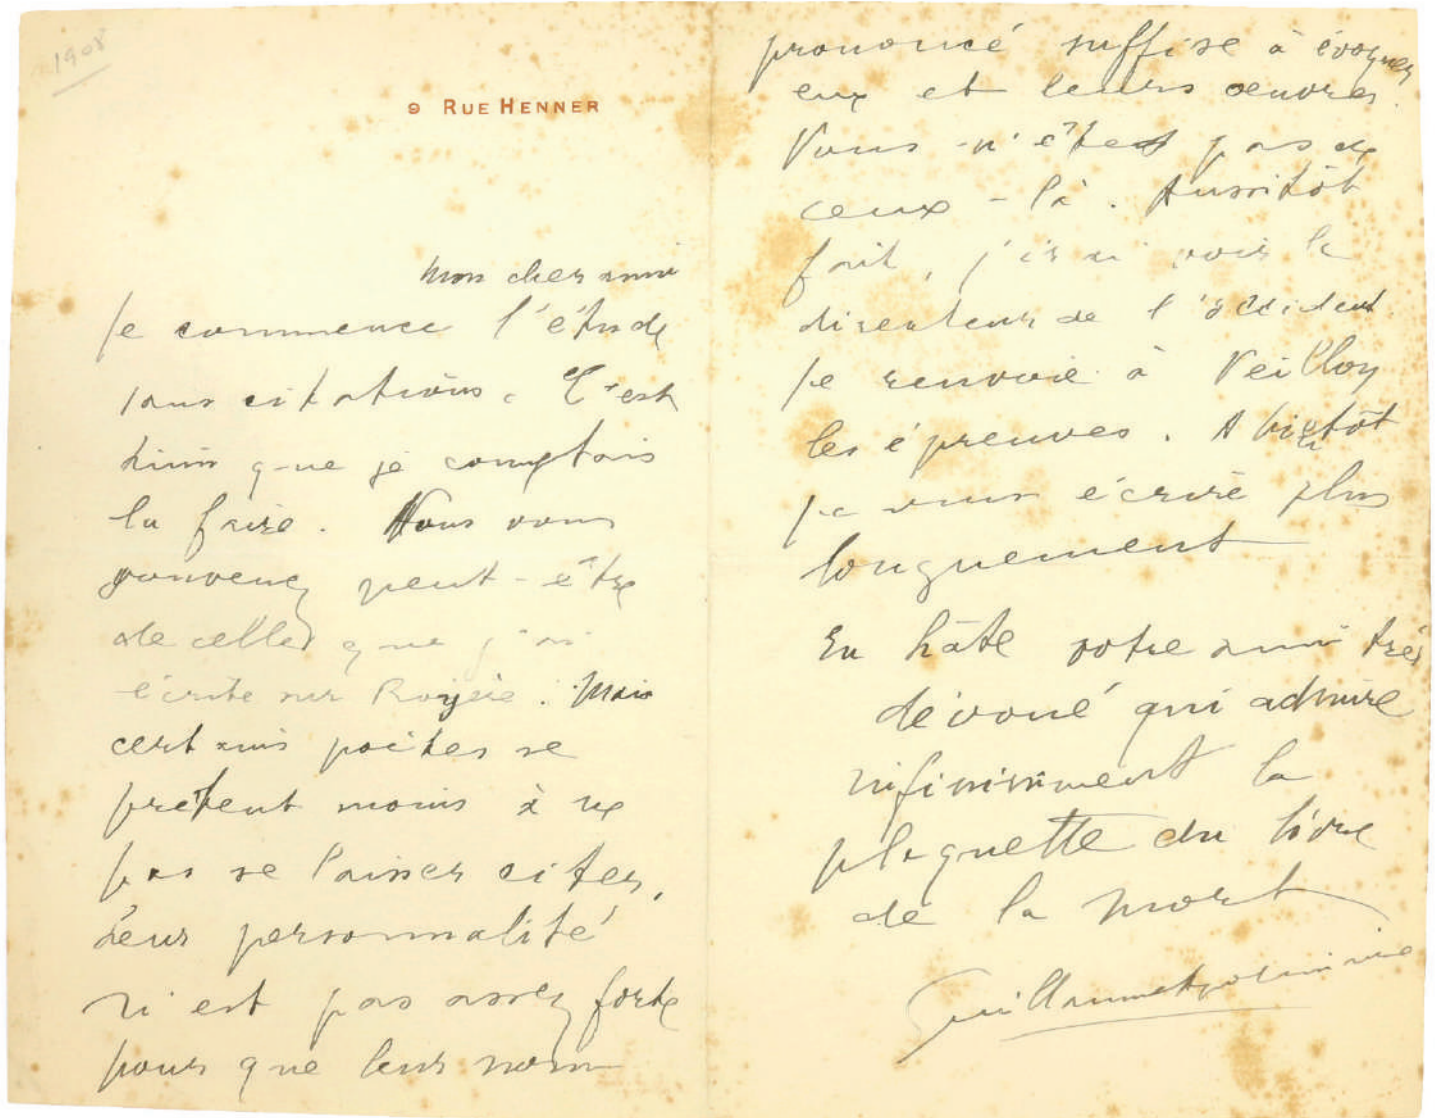 1908
9 RUE HENNER
Mon cher ami
Je commence l'étude
sans citations. C'est
ainsi que je comptais
la faire. Vous vous
souvenez peut-être
de celle que j'ai
écrite sur Royère. Mais
certains poètes se
prêtent moins à ne
pas se laisser citer,
Leur personnalité
n'est pas assez forte
pour que leur nom
prononcé suffise à évoquer
eux et leurs œuvres.
Vous n'êtes pas de
ceux-là. Aussitôt
fait, j'irai voir le
directeur de l'occident
Je renvoie à
les épreuves. A bientôt
je vous écrirai plus
longuement
En hâte votre ami très
dévoué qui admire
infiniment la
plaquette du livre
de la mort
Guillaume Apollinaire